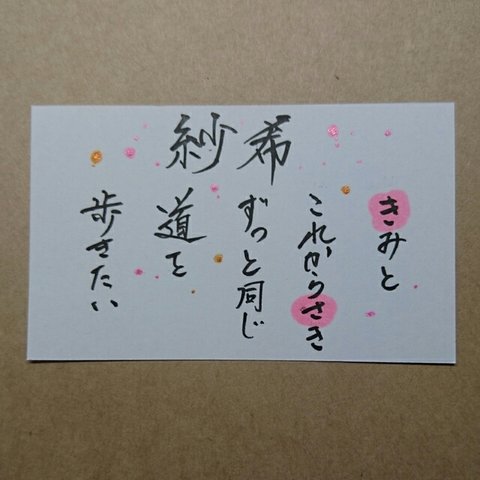 紗希
きみと
これからさき
ずっと同じ
道を
歩きたい